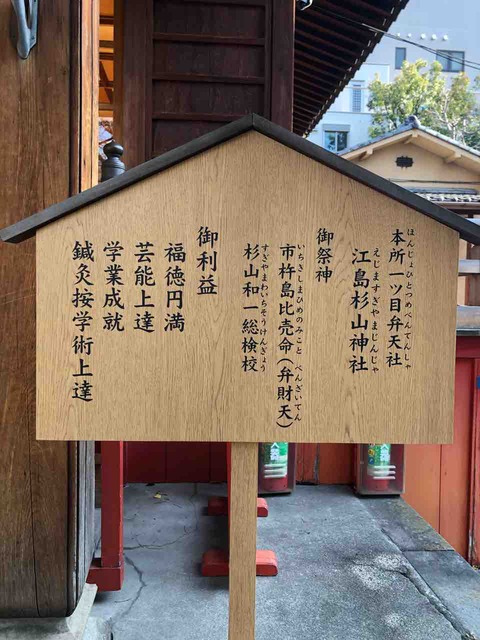 ほんじょひとつめべんてんしゃ
本所一ツ目弁天社
えじますぎやまじんじゃ
江島杉山神社
御祭神
いちきしまひめのみこと べんざいてん
市杵島比売命(弁財天)
すぎやまわいちそうけんぎょう
杉山和一総検校
御利益
福徳円満
芸能上達
学業成就
鍼灸按学術上達